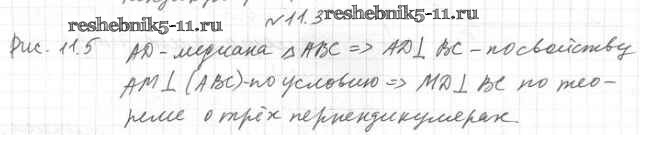 № 11.3 reshebnik5-11.ru
reshebnik5-11.ru
Рис. 11.5 AD - медиана △ABC => AD⊥ BC - по свойству
AM⊥ (ABC) - по условию => MD⊥ BC по тео-
реме о трёх перпендикулярах.